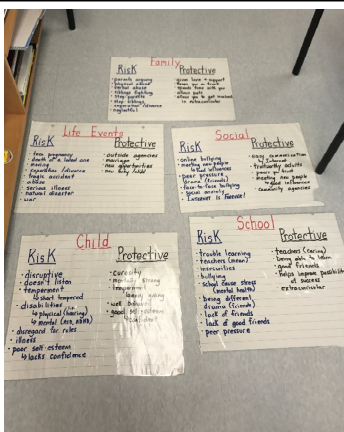 Family
Risk
Protective
· parents arguing
· physical abuse
· verbal abuse
· siblings fighting
· step parents
· step siblings
· separation/divorce
· neglectful
· given love + support
· spends time with you
· allows pets
· allows you to get involved
in extracurricular
Life Events
Risk
Protective
· teen pregnancy
· death of a loved one
· moving
· separation/divorce
· tragic accident
· abuse
· serious illness
· natural disaster
· war
· outside agencies
· marriage
· new opportunities
· new baby
Social
Risk
Protective
· online bullying
· meeting new people
↳ bad influences
· peer pressure
· drama (friends)
· face-to-face bullying
· social anxiety
· Internet is Forever!
· easy communication
internet
· trustworthy adults
· meeting new people
↳ good influence
· community agencies
Child
Risk
Protective
· disruptive
· doesn't listen
· temperment
↳ short tempered
· disabilities
↳ physical (hearing)
↳ mental
· disregard for rules
· illness
· poor self-esteem
↳ lacks confidence
· mentally strong
· temperment
· well behaved
· good self-esteem
↳ confident
School
Risk
Protective
· trouble learning
· teachers (mean)
· insecurities
· bullying
· school cause stress
(mental health)
· being different
· drama (friends)
· lack of friends
· lack of good friends
· peer pressure
· teachers (caring)
· being able to learn
· good friends
· helps improve possibility
of success
· extracurricular